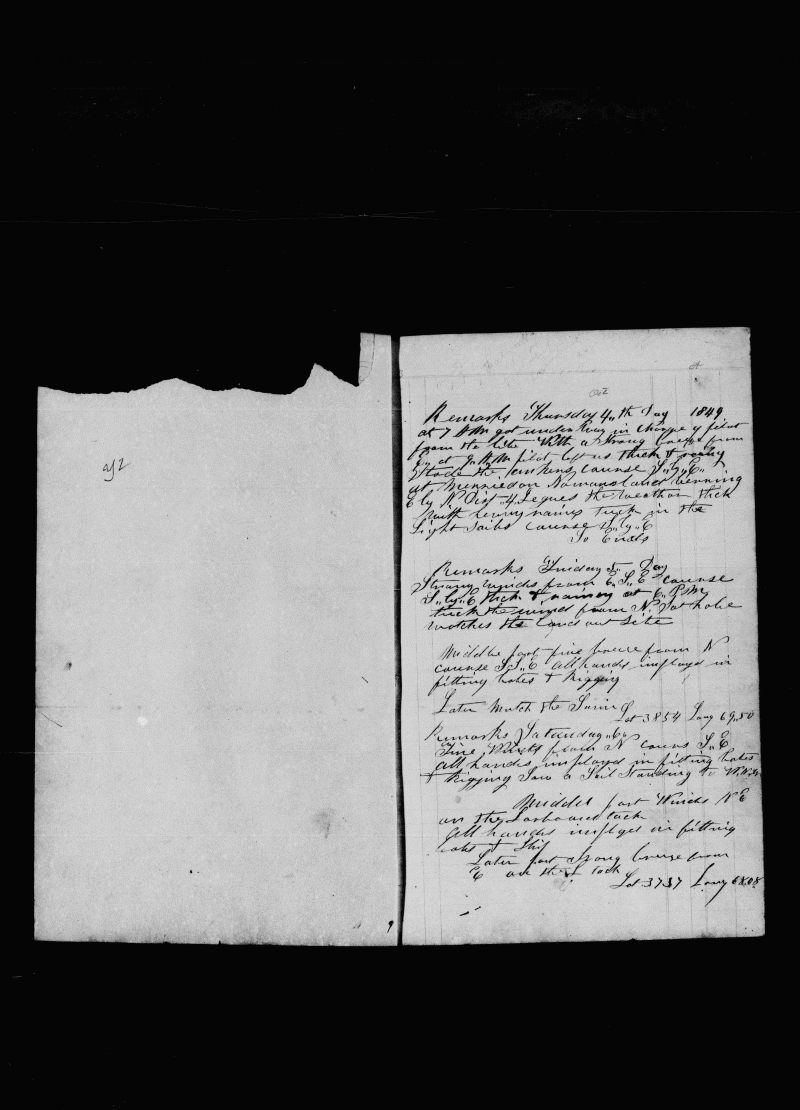 92
92
Remarks Thursday 4,,th Day 1849
at 7 AM got underway in charge of pilot
from the lite With a Strong breeze from
E,, at 9,, AM pilot left us thick &
the course S,,by,,E,,
at Meridian Nomansland
E by N Dist 4 Legues the weather thick
with took in the
Light Sails course S,,by,,E
So Ends
Remarks Friday 5 Day
Strong winds from E,S,E course
S,,by,,E thick & rainey at 6,PM
tuck the wind from N.
watches the Land out Site
Middle part fine breeze from N
course S,S,,E all hands imployed in
fitting botes & Rigging
Later Watch the Same
Lat 38 54 Long 69,50
Remarks Saturday ,,6,,
Fine Winds from N Cours S,,E
all handes imployed in fitting botes
& Rigging Saw a Sail Standing to
Middel part Winds NE
on the Larboard tack
all hands in fitting
& Ship
Later part Strong breeze from
E on the L tack
Lat 37 37 Long 68,08
9